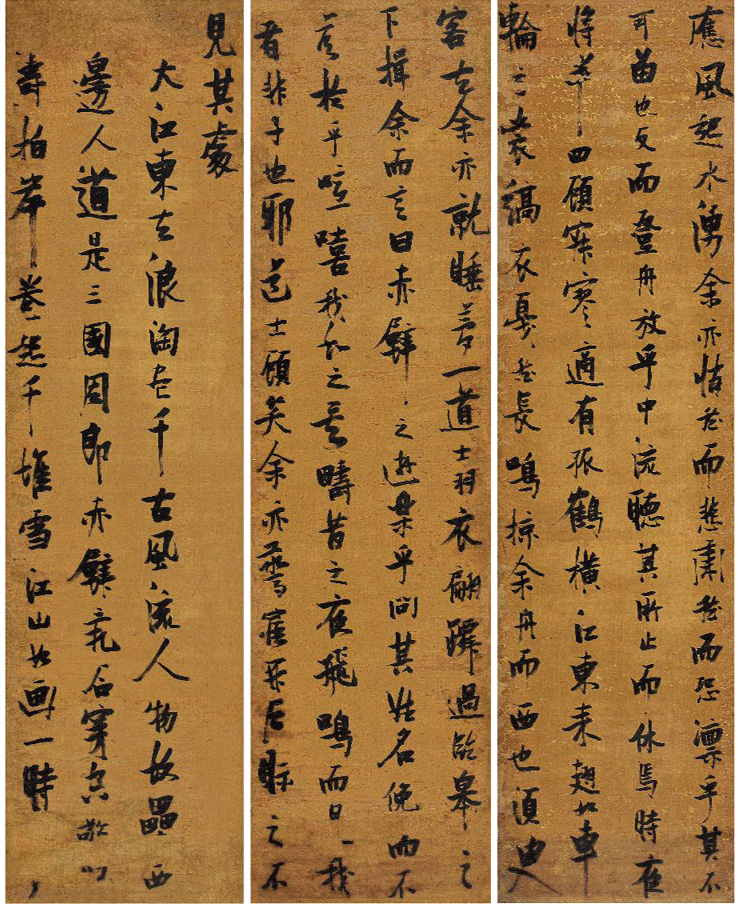 應風起水湧余亦悄然而悲肅然而恐凛乎其不
可留也反而登舟放乎中流聽其所止而休焉時夜
將半四顧寂寥適有孤鶴橫江東來翅如車
輪玄裳縞衣戛然長鳴掠余舟而西也須臾
客去余亦就睡夢一道士羽衣翩躚過臨皋之
下揖余而言曰赤壁之遊樂乎問其姓名俛而不
答於乎噫嘻我知之矣疇昔之夜飛鳴而過我
者非子也耶道士顧笑余亦驚寤開戶視之不
見其處
大江東去浪淘盡千古風流人物故壘西
邊人道是三國周郎赤壁亂石穿空
濤拍岸卷起千堆雪江山如画一時